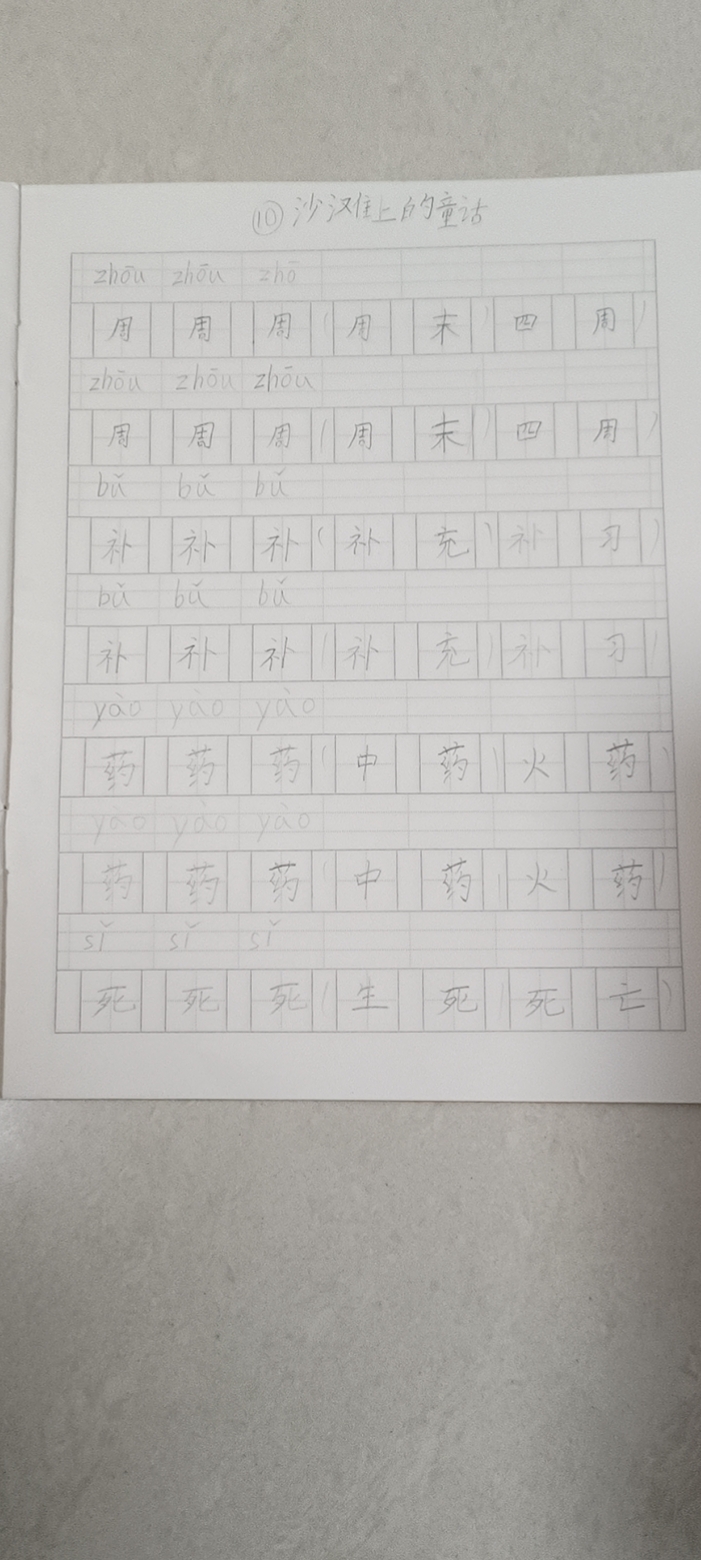 ⑩沙汉住上的童话
zhōu zhōu zhō
周 周 周(周 末)四 周)
zhōu zhōu zhōu
周 周 周(周 末)四 周)
bǔ bǔ bǔ
补 补 补(补 充)补 习)
bǔ bǔ bǔ
补 补 补(补 充)补 习)
yào yào yào
药 药 药(中 药)火 药)
yào yào yào
药 药 药(中 药)火 药)
sǐ sǐ sǐ
死 死 死(生 死)死 亡)